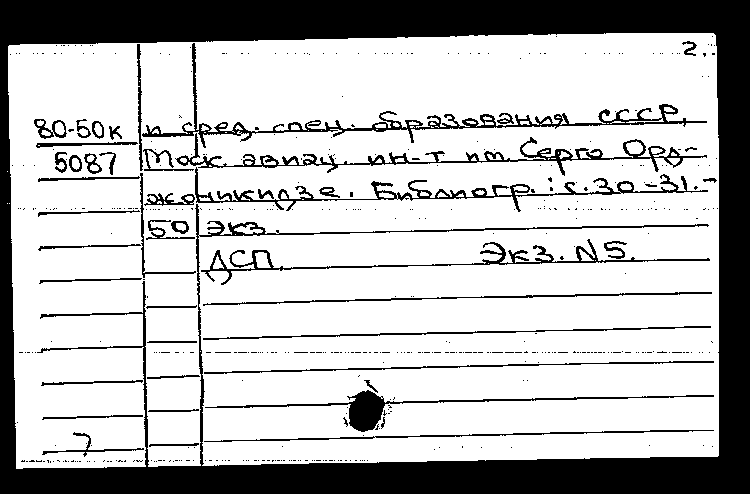 2.
80-50к и сред. спец. образования СССР,
5087 Моск. авиац. ин-т им. Серго Орд-
жоникидзе. Библиогр.: с. 30-31. -
50 экз.
ДСП. Экз. N5.